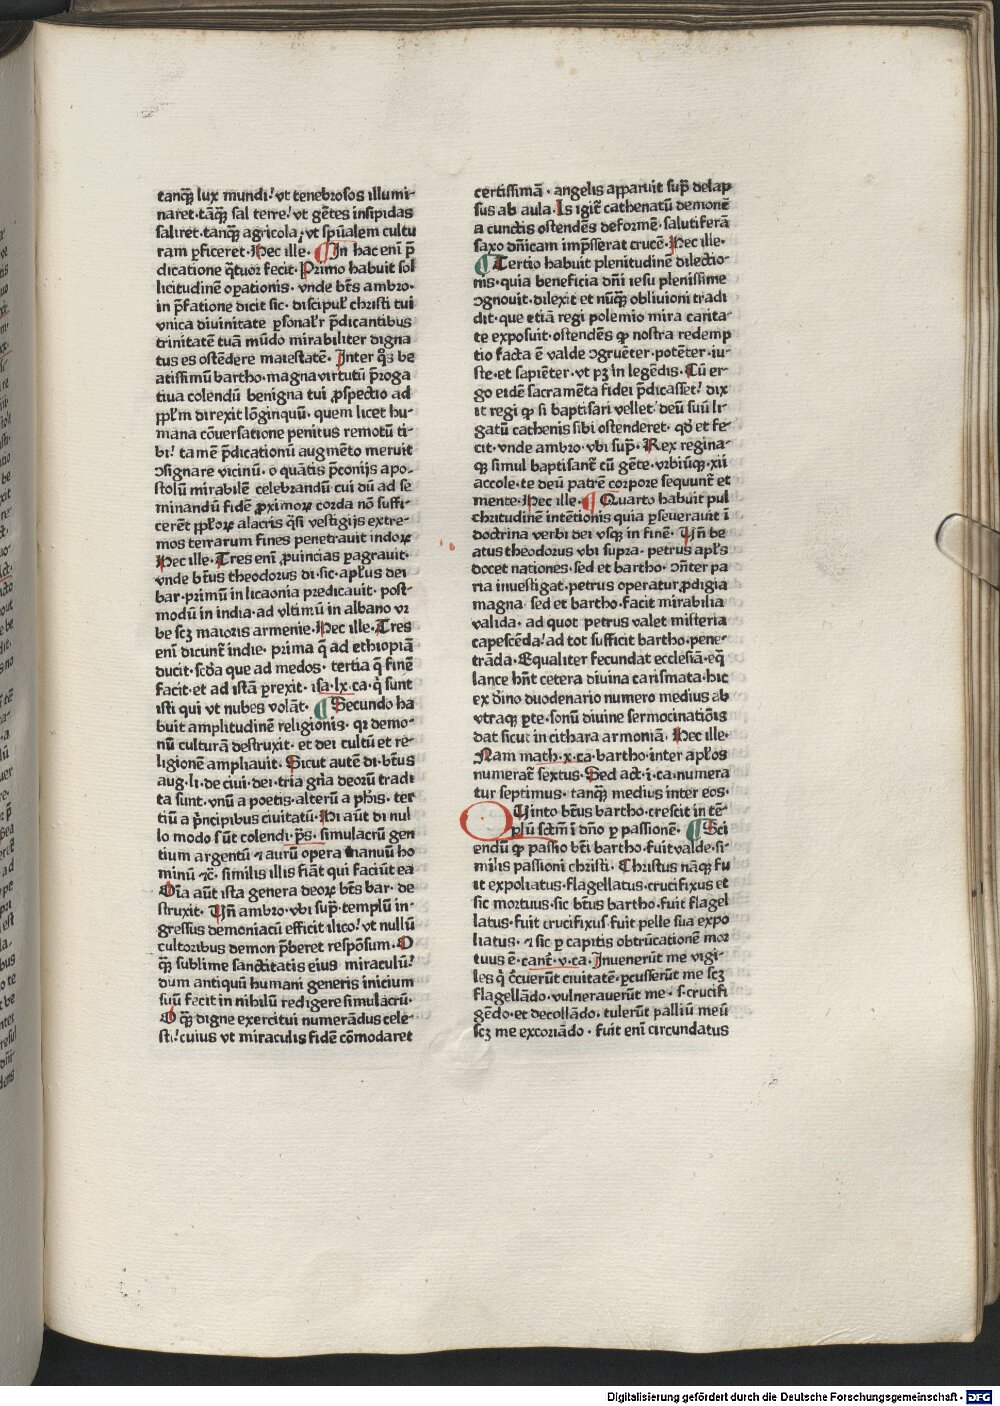 tanqꝫ lux mundi! vt tenebrosos illumi-
naret·tāqꝫ sal terre! vt gētes insipidas
saliret·tanqꝫ agricola; vt spūalem cultu
ram ꝑficeret·Hec ille· ¶ In hac eni p̄
dicatione q̄tuor fecit· Primo habuit sol
licitudinē oꝑationis· vnde bt̄s ambro·
in p̄fatione dicit sic· discipuł christi tui
vnica diuinitate ꝑsonałr p̄dicantibus
trinitatē tuā mūdo mirabiliter digna
tus es ostēdere maiestatē· Inter qͦs be
atissimū bartho·magna virtutū p̄roga
tiua colendū benigna tui ꝓspectio ad
ppłm direxit lōginquū· quem licet hu-
mana cōuersatione penitus remotū ti-
bi! tamē p̄dicationū augmēto meruit
ꝯsignare vicinū· o quātis p̄conijs apo-
stolū mirabilē celebrandū cui dū ad se
minandū fidē ꝓximoꝝ corda nō suffi-
cerēt ppłoꝝ alacris q̄si vestigijs extre-
mos terrarum fines penetrauit indoꝝ
Hec ille· Tres eni ꝓuincias ꝑagrauit·
vnde bt̄us theodorus di·sic·apłus dei
bar·primū in licaonia predicauit· post-
modū in india·ad vltimū in albano vr
be scꝫ maioris armenie·Hec ille·Tres
eni dicunt̄ indie· prima q̄ ad ethiopiā
ducit·scd̄a que ad medos· tertia q̄ finē
facit·et ad istā ꝑexit· isa·lx·ca·q̇ sunt
isti qui vt nubes volāt· ¶ Secundo ha
buit amplitudinē religionis· qꝛ demo-
nū culturā destruxit· et dei cultū et re-
ligionē ampliauit· Sicut autē di·bt̄us
aug·li·de ciui·dei·tria gn̄a deorū tradi
ta sunt·vnū a poetis·alterū a ph̄is· ter
tiū a p̄ncipibus ciuitatū·Hi aūt di nul
lo modo sūt colendi·ps̄· simulacrū gen
tium argentū ⁊ aurū opera manuū ho
minū ⁊c̄· similis illis fiāt qui faciūt ea
Oīa aūt ista genera deoꝝ bt̄s bar· de
struxit· Vn̄ ambro·vbi sup̄·templū in-
gressus demoniacū efficit ilico! vt nullū
cultoribus demon p̄beret respōsum·O
qꝫ sublime sanctitatis eius miraculū!
dum antiquū humani generis inicium
suū fecit in nihilū redigere simulacrū·
O qꝫ digne exercitui numerādus cele-
sti! cuius vt miraculis fidē cōmodaret
certissimā · angelis apparuit sup̄ delap
sus ab aula·Is igit̄ cathenatū demonē
a cunctis ostendēs deformē·salutiferā
saxo dn̄icam imp̄sserat crucē·Hec ille·
¶ Tertio habuit plenitudinē dilectio-
nis·quia beneficia dn̄i iesu plenissime
ꝯgnouit·dilexit et nūqꝫ obliuioni tradi
dit·que etiā regi polemio mira carita-
te exposuit·ostendēs ꝙ nostra redemp
tio facta ē valde ꝯgruēter·potēter·iu-
ste·et sapiēter·vt pꝫ in legēdis·Cū er-
go eidē sacramēta fidei p̄dicasset! dix
it regi ꝙ si baptisari vellet! deū suū li-
gatū cathenis sibi ostenderet· qd̄ et fe
cit·vnde ambro·vbi sup̄·Rex regina-
qꝫ simul baptisant̄ cū gēte·vrbiūqꝫ·xii
accole·te deū patrē corpore sequunt̄ et
mente·Hec ille·¶ Quarto habuit pul
chritudinē intētionis quia ꝑseuerauit ī
doctrina verbi dei vsqꝫ in finē· Vn̄ be
atus theodorus vbi supra· petrus apłs
docet nationes·sed et bartho·ꝯn̄ter pa
ria inuestigat·petrus operatur ꝓdigia
magna sed et bartho·facit mirabilia
valida· ad quot petrus valet misteria
capescēda! ad tot sufficit bartho·pene-
trāda·Equaliter fecundat ecclesiā·eq̄
lance hn̄t cetera diuina carismata·hic
ex d̄ino duodenario numero medius ab
vtraqꝫ ꝑte·sonū diuine sermocinatiōis
dat sicut in cithara armoniā· Hec ille·
Nam math·x·ca·bartho·inter apłos
numerat̄ sextus·Sed act·i·ca·numera
tur septimus· tanqꝫ medius inter eos·
Quinto bt̄us bartho·crescit in tē-
plū sctm̄ ī dn̄o ꝑ passionē· ¶ Sci
endū ꝙ passio bt̄i bartho·fuit valde·si-
milis passioni christi· Christus nāqꝫ fu
it expoliatus·flagellatus·crucifixus et
sic mortuus·sic bt̄us bartho·fuit flagel
latus·fuit crucifixus·fuit pelle sua expo
liatus· ⁊ sic ꝑ capitis obtrūcationē mor
tuus ē·cant̄·v·ca·Inuenerūt me vigi-
les q̇ c̄cuerūt ciuitatē·ꝑcusserūt me scꝫ
flagellādo·vulnerauerūt me·s·crucifi
gēdo·et decollādo·tulerūt palliū meū
scꝫ me excoriādo·fuit eni circundatus
Digitalisierung gefördert durch die Deutsche Forschungsgemeinschaft - DFG